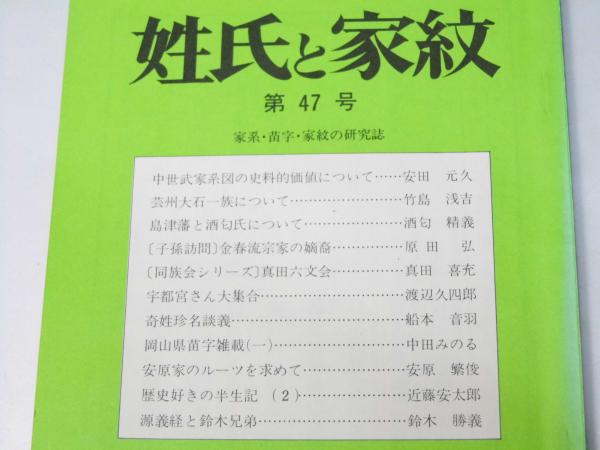 姓氏と家紋
第 47 号
家系・苗字・家紋の研究誌
中世武家系図の史料的価値について……安田 元久
芸州大石一族について…………………竹島 浅吉
島津藩と酒匂氏について………………酒匂 精義
〔子孫訪問〕金春流宗家の嫡裔…………原田 弘
〔同族会シリーズ〕真田六文会…………真田 喜充
宇都宮さん大集合………………………渡辺久四郎
奇姓珍名談義……………………………船本 音羽
岡山県苗字雑載(一)……………………中田みのる
安原家のルーツを求めて………………安原 繁俊
歴史好きの半生記 (2)…………………近藤安太郎
源義経と鈴木兄弟………………………鈴木 勝義